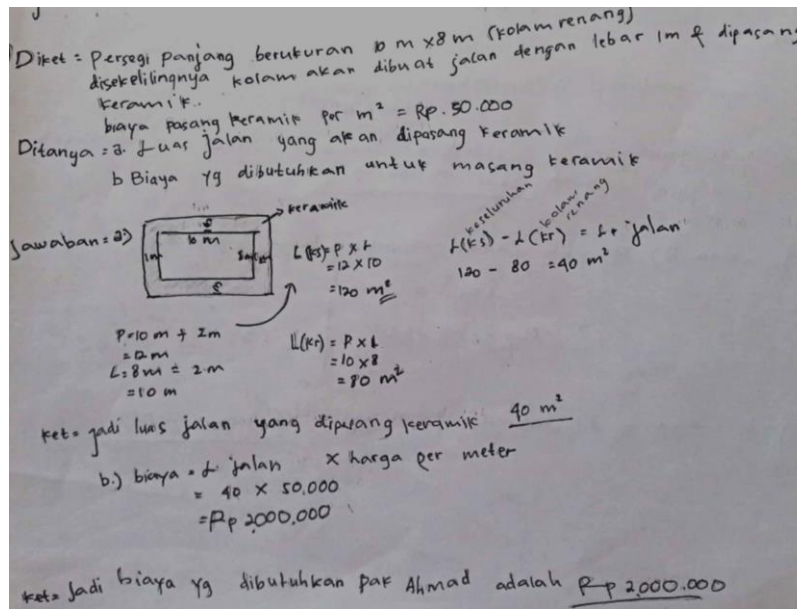 Diket = Persegi panjang berukuran 10 m x 8 m (kolam renang)
disekelilingnya kolam akan dibuat jalan dengan lebar 1m & dipasang
keramik.
biaya pasang keramik per m² = Rp. 50.000
Ditanya = a. Luas jalan yang akan dipasang keramik
b Biaya yg dibutuhkan untuk masang keramik
Jawaban = a)
keramik
10 m
1m
L(ks) = P x L
= 12 x 10
= 120 m²
keseluruhan
kolam renang
L(ks) - L(kr) = L. jalan
120 - 80 = 40 m²
P = 10 m + 2m
= 12 m
L = 8 m + 2 m
= 10 m
L(kr) = P x L
= 10 x 8
= 80 m²
ket = jadi luas jalan yang dipasang keramik 40 m²
b.) biaya = L jalan x harga per meter
= 40 x 50.000
= Rp 2000.000
ket = Jadi biaya yg dibutuhkan pak Ahmad adalah Rp 2.000.000